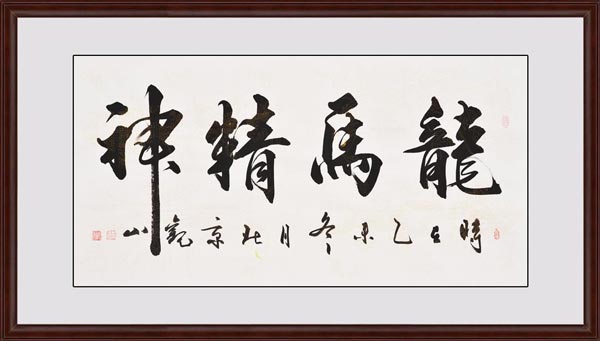 龍馬精神
時在乙未冬月於京觀山